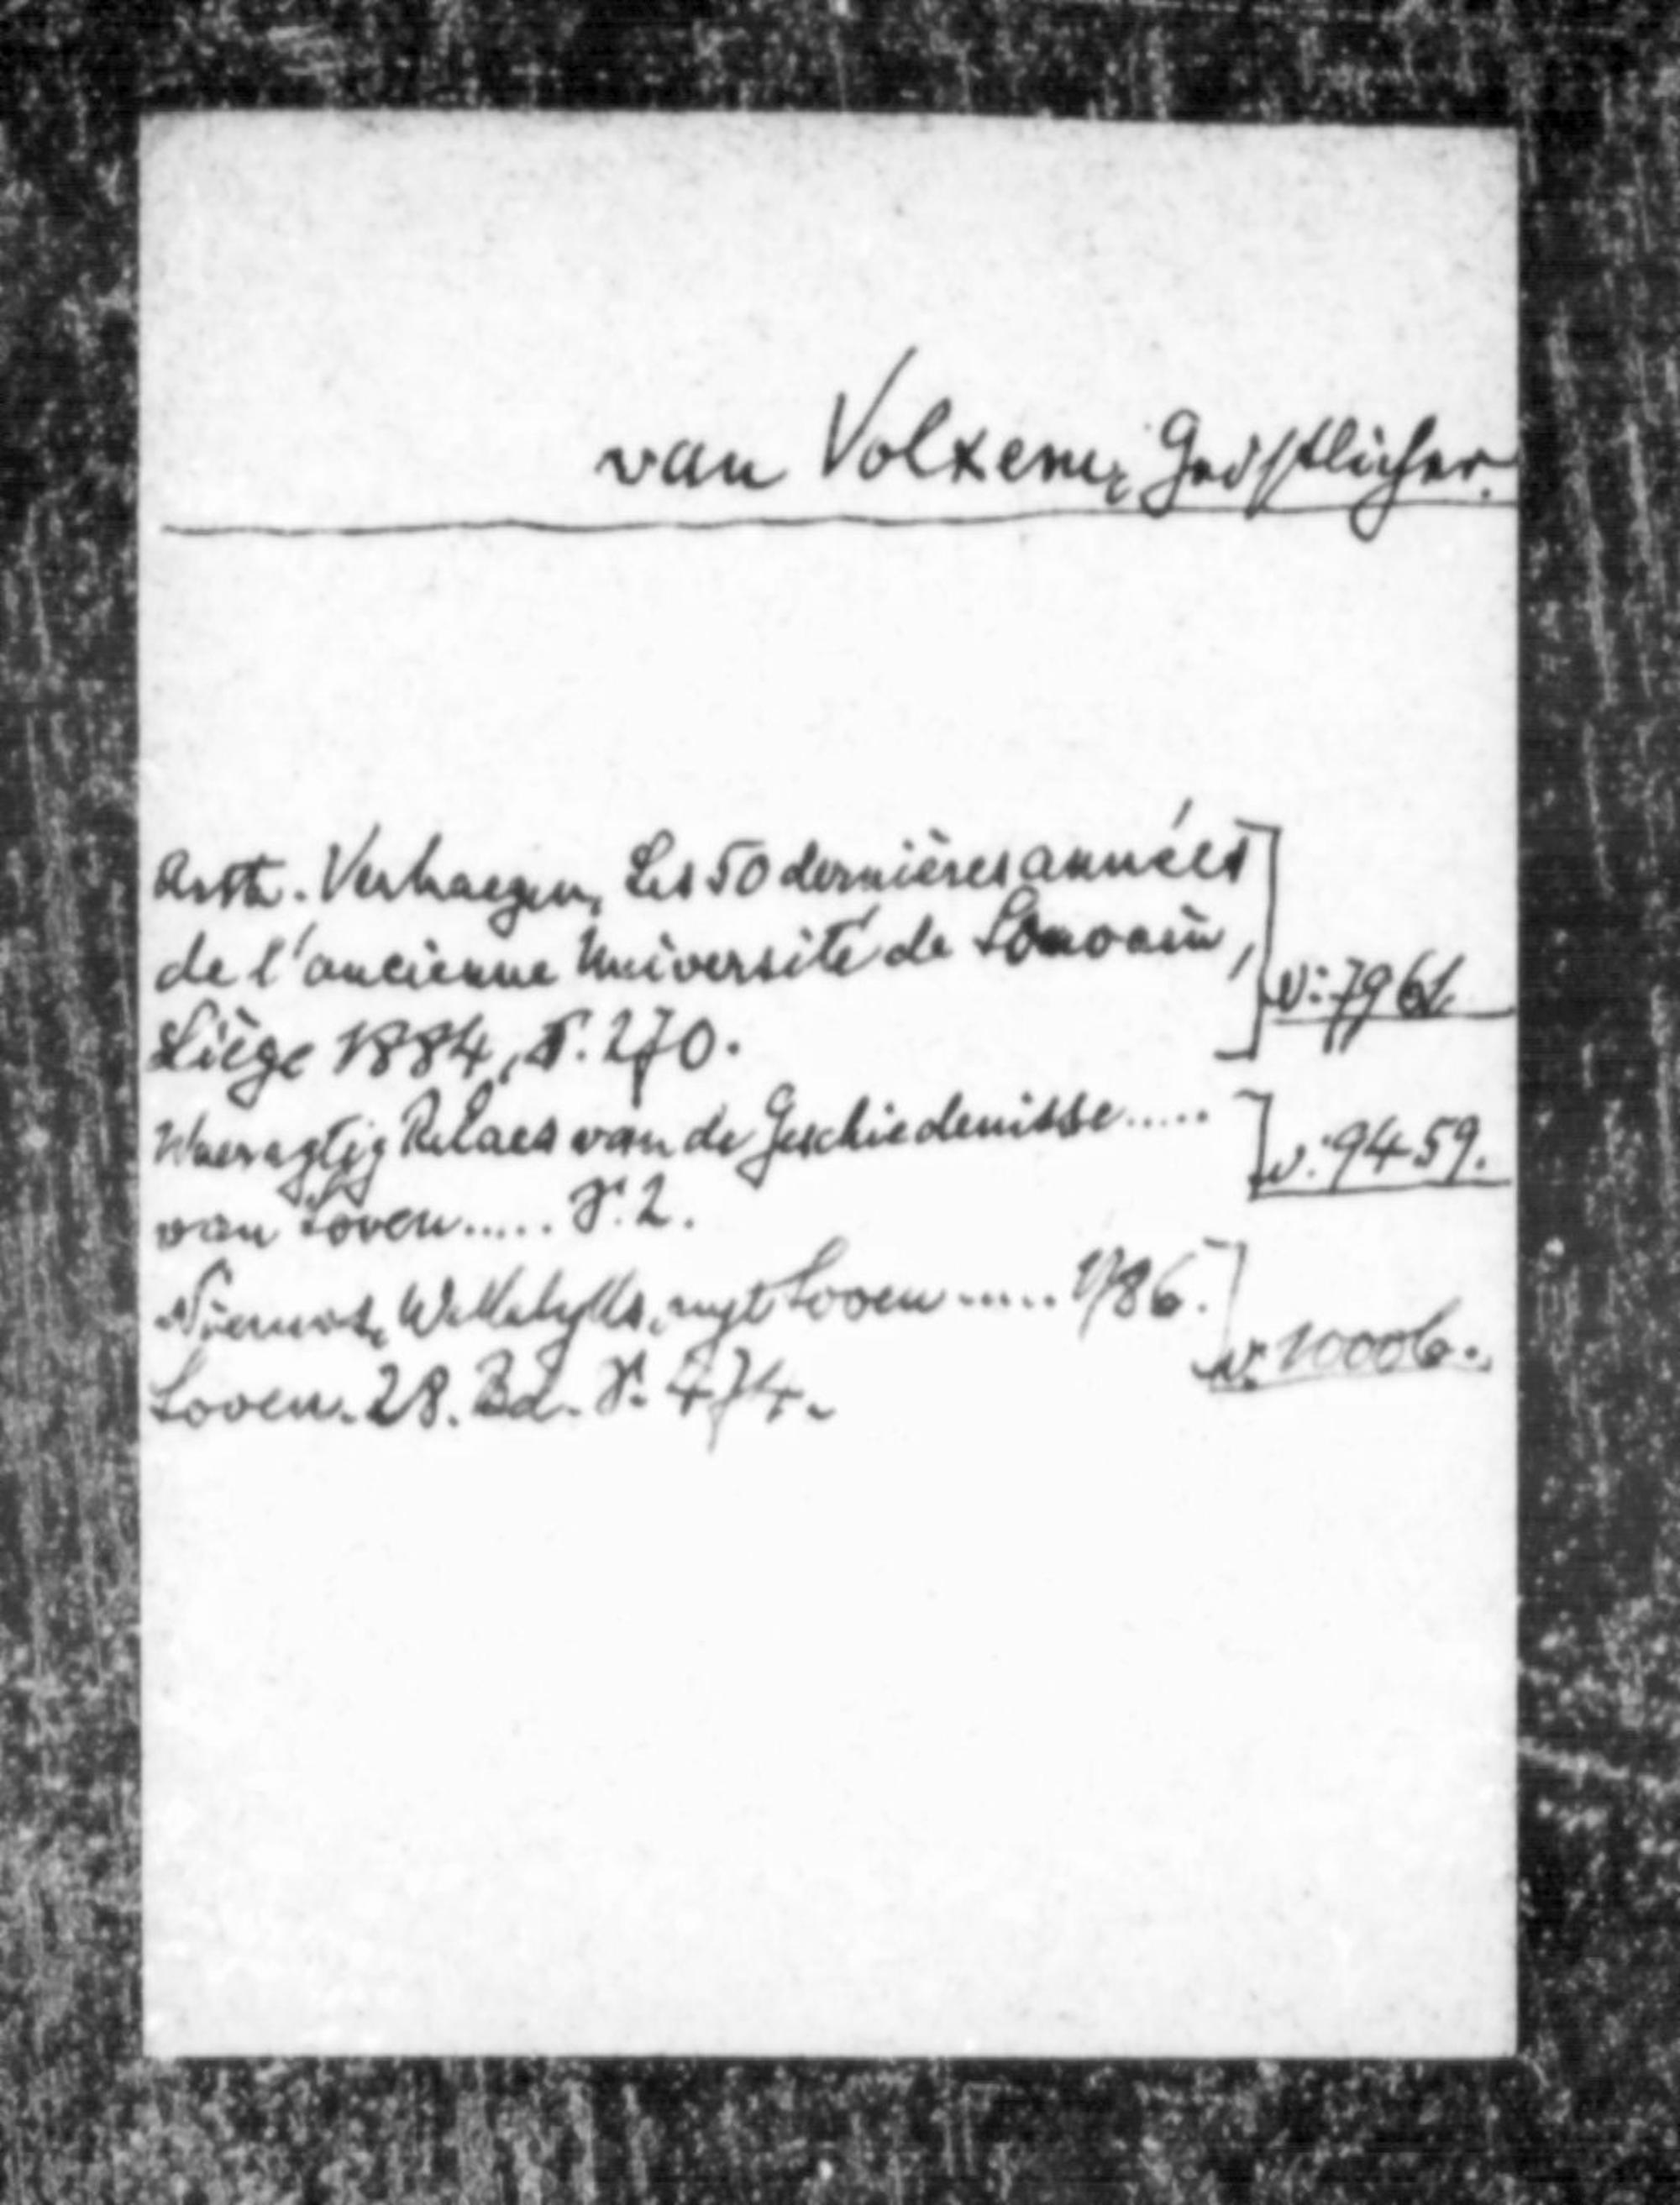 van Volxem, Geistlicher.
Arth. Verhaegen, Les 50 dernières années
de l'ancienne Université de Louvain,
Liège 1884, S. 270.
v: 7961.
Waeragtig Relaes van de Geschiedenisse.....
van Loven..... S. 2.
v. 9459.
uyt Loven..... 1786.
Loven. 28. Bd. S. 474.
v. 10006.